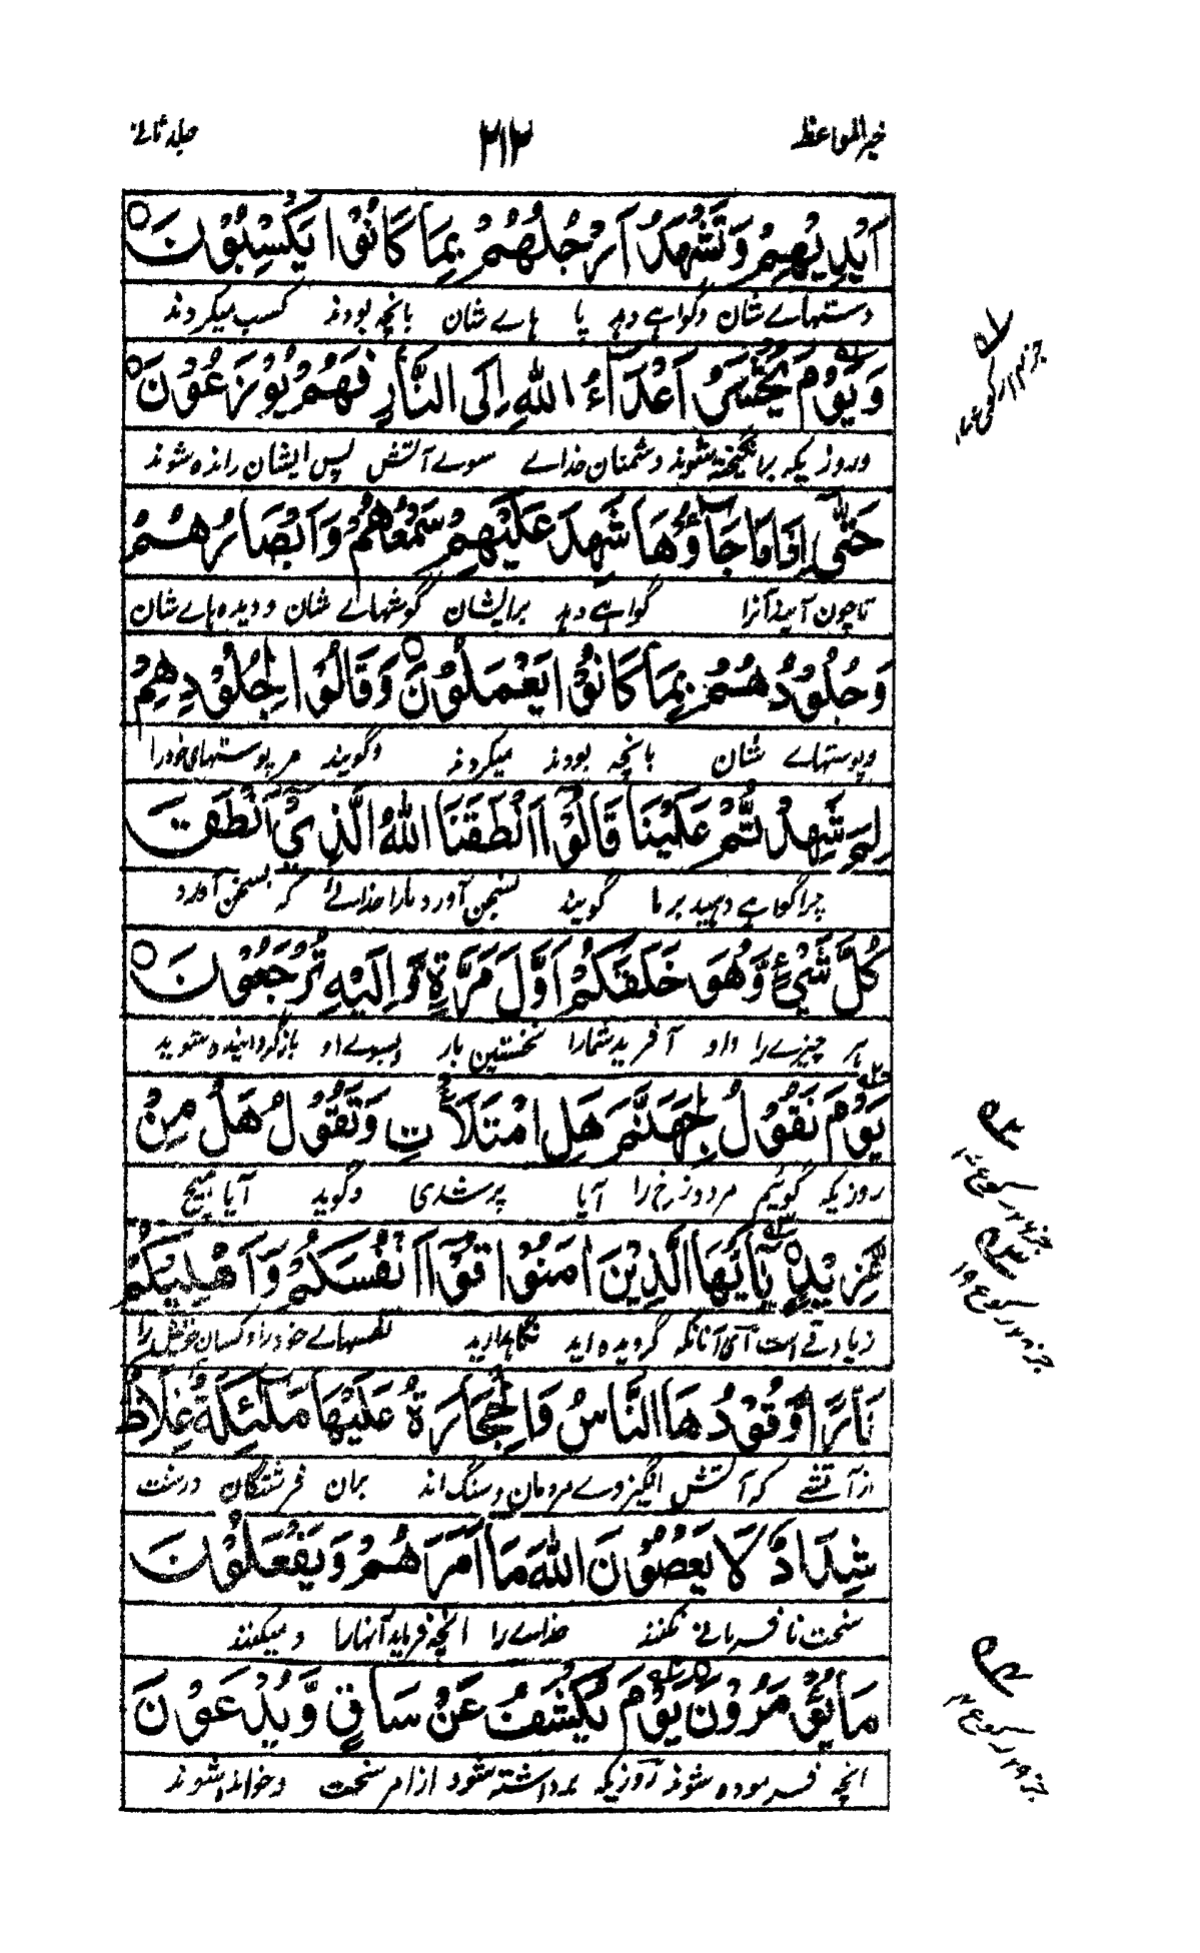 خیر المواعظ ۲۱۲ جلد ثانے
اَیْدِیْهِمْ وَتَشْهَدُ اَرْجُلُهُمْ بِمَا كَانُوْا یَكْسِبُوْنَ
دستہاے شان وگواہے دہد پا ہاے شان بانچہ بودند کسب میکردند
وَیَوْمَ یُحْشَرُ اَعْدَآءُ اللّٰهِ اِلَی النَّارِ فَهُمْ یُوْزَعُوْنَ
وروز یکہ برانگیختہ شوند دشمنان خداے سوے آتش پس ایشان راندہ شوند
حَتّٰۤی اِذَا مَا جَآءُوْهَا شَهِدَ عَلَیْهِمْ سَمْعُهُمْ وَاَبْصَارُهُمْ
تاچون آیند آنرا گواہے دہد برایشان گوشہاے شان و دیدہ ہاے شان
وَجُلُوْدُهُمْ بِمَا كَانُوْا یَعْمَلُوْنَ وَقَالُوْا لِجُلُوْدِهِمْ
وپوستہاے شان بانچہ بودند میکردند وگویند مر پوستہای خود را
لِمَ شَهِدْتُّمْ عَلَیْنَا قَالُوْۤا اَنْطَقَنَا اللّٰهُ الَّذِیْۤ اَنْطَقَ
چرا گواہے دہید برما گویند بسخن آورد مارا خداے کہ بسخن آورد
كُلَّ شَیْءٍ وَّهُوَ خَلَقَكُمْ اَوَّلَ مَرَّةٍ وَّاِلَیْهِ تُرْجَعُوْنَ
ہر چیزے را واو آفرید شمارا نخستین بار وبسوے او بازگردانیدہ شوید
یَوْمَ نَقُوْلُ لِجَهَنَّمَ هَلِ امْتَلَاْتِ وَتَقُوْلُ هَلْ مِنْ
روز یکہ گوئیم مر دوزخ را آیا پر شدی وگوید آیا ہیچ
مَّزِیْدٍ یٰۤاَیُّهَا الَّذِیْنَ اٰمَنُوْا قُوْۤا اَنْفُسَكُمْ وَاَهْلِیْكُمْ
زیادتے است آی آنانکہ گرویدہ اید نگاہدارید نفسہاے خود را وکسان خویش را
نَارًا وَّقُوْدُهَا النَّاسُ وَالْحِجَارَةُ عَلَیْهَا مَلٰٓئِكَةٌ غِلَاظٌ
ازآتشے کہ آتش انگیز وے مردمان وسنگ اند بران فرشتگان درشت
شِدَادٌ لَّا یَعْصُوْنَ اللّٰهَ مَاۤ اَمَرَهُمْ وَیَفْعَلُوْنَ
سخت نافرمانے نکنند خداے را انچہ فرماید آنہارا ومیکنند
مَا یُؤْمَرُوْنَ یَوْمَ یُكْشَفُ عَنْ سَاقٍ وَّیُدْعَوْنَ
انچہ فرمودہ شوند روزیکہ برداشتہ شود ازامر سخت وخواندہ شوند